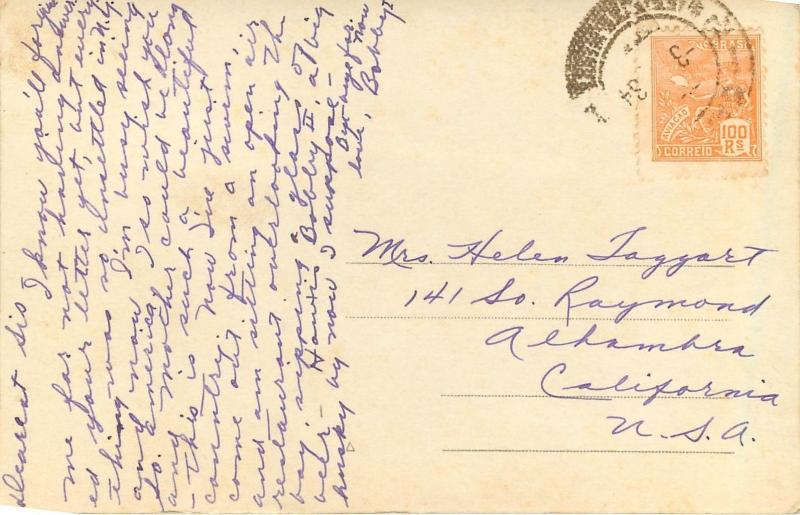 Dearest Sis I know you'll forgive
me for not having answer-
ed your letter yet, but every
thing was so unsettled in N.Y.
and now I'm busy seeing
So. America. I so wish you
and mother could be along
- this is such a beautiful
country. Now I've just
come out from a swim,
and am sitting in an open air
restaurant overlooking the
bay, sipping a glass of
beer - How's Bobby II, a big
husky by now I suppose -
Bye bye for now
love, Bobby I
BRASIL
AVIAÇÃO
100 RS
CORREIO
34
Mrs. Helen Taggart
141 So. Raymond
Alhambra
California
U.S.A.